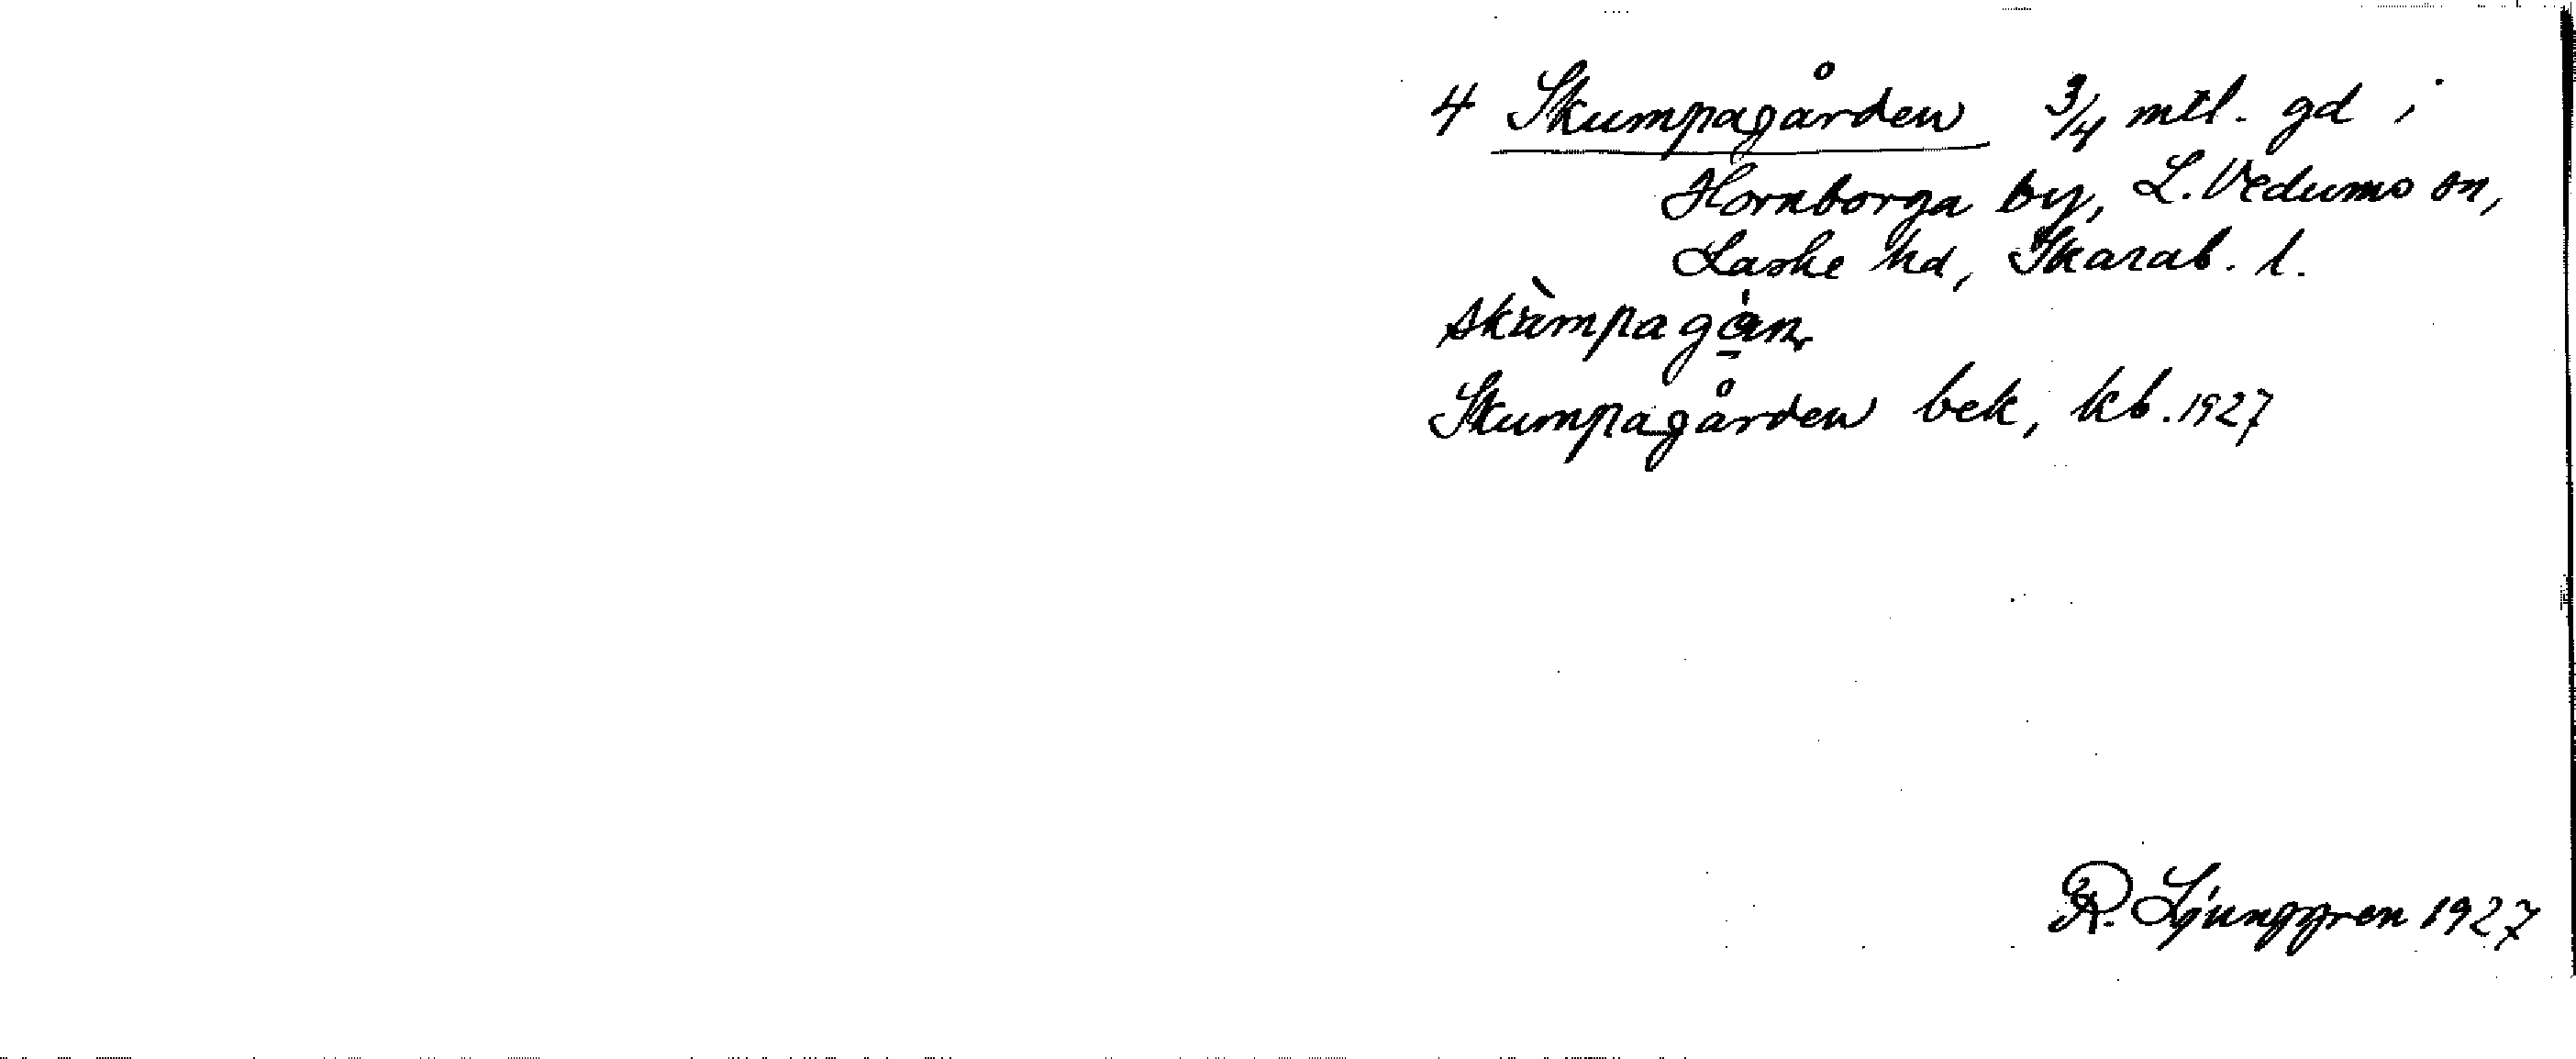 4 Skumpagården 3/4 mtl. gd i
Hornborga by, L. Vedums sn,
Laske hd, Skarab. l.
skùmpagán
Skumpagården bek, kb. 1927
R. Ljunggren 1927